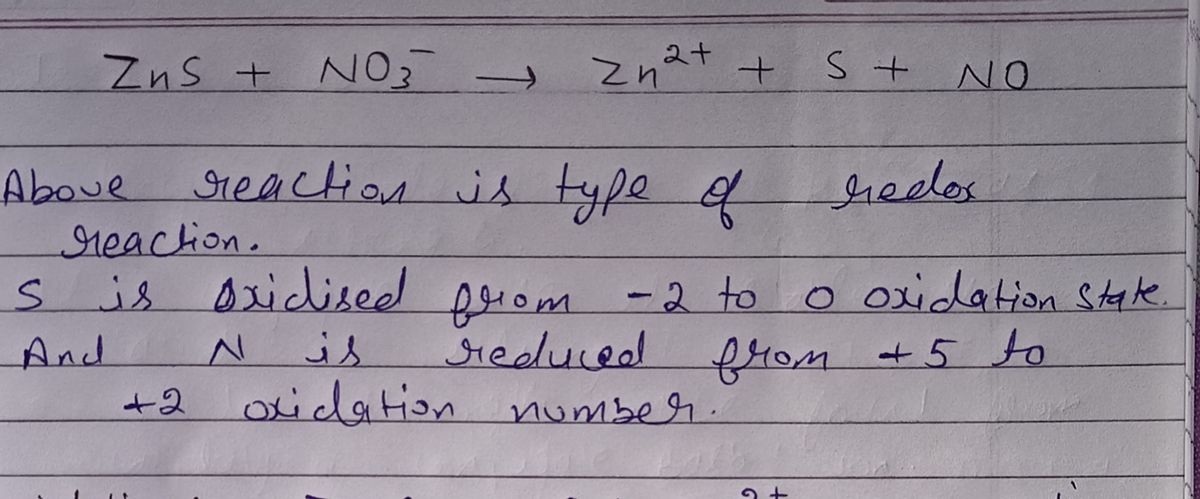 ZnS + NO₃⁻ → Zn²⁺ + S + NO
Above reaction is type of redox
reaction.
S is oxidised from -2 to 0 oxidation state.
And N is reduced from +5 to
+2 oxidation number.